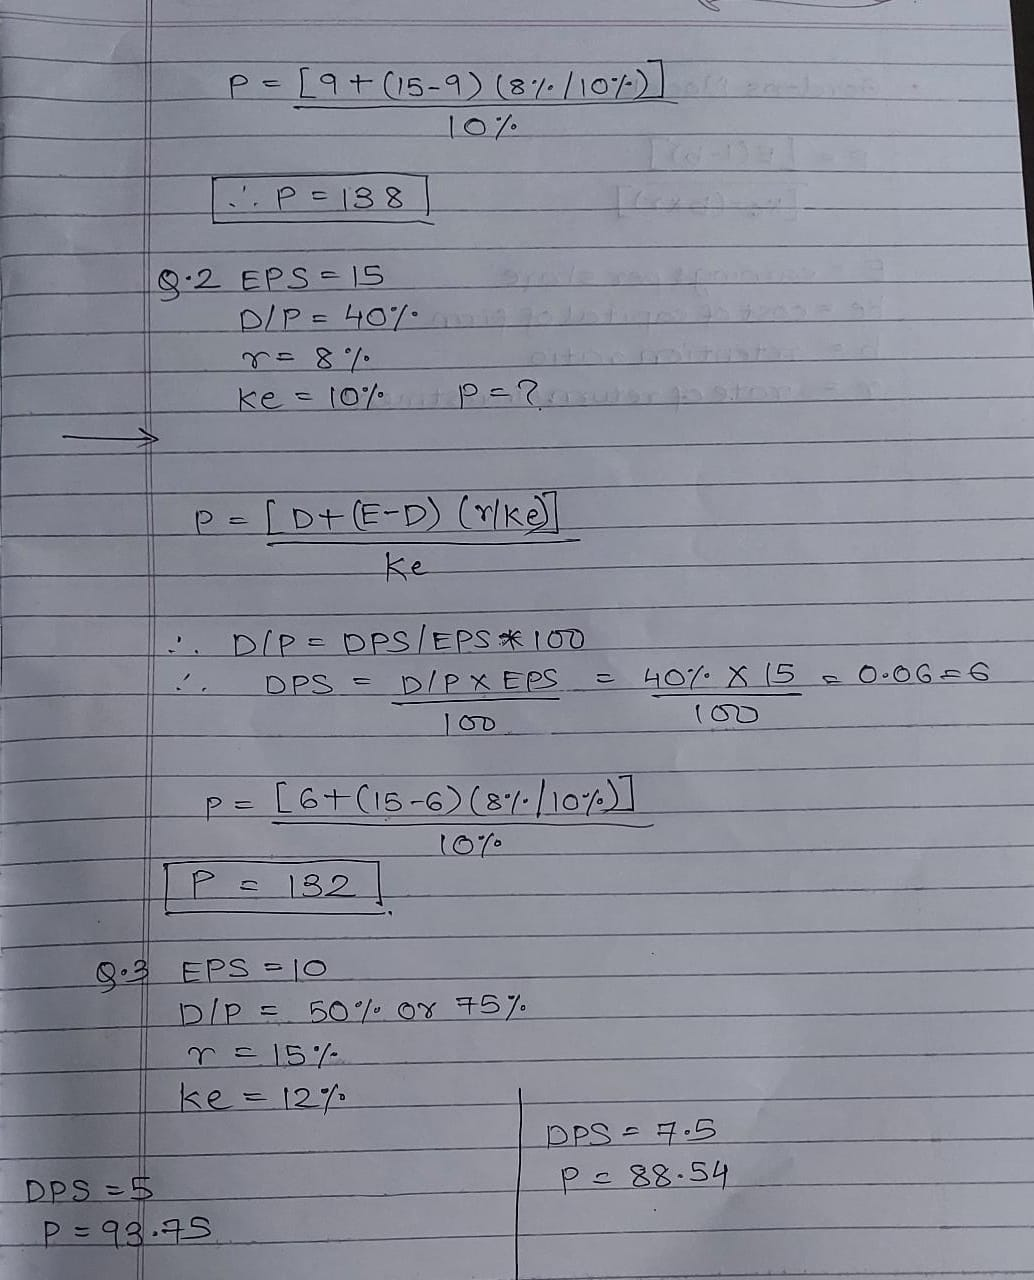 P = [9 + (15-9) (8% / 10%)]
10%
∴ P = 138
Q.2 EPS = 15
D/P = 40%
r = 8%
Ke = 10% P = ?
P = [D + (E-D) (r/Ke)]
Ke
∴ D/P = DPS/EPS * 100
∴ DPS = D/P X EPS = 40% X 15 = 0.06 = 6
100 100
P = [6 + (15-6) (8% / 10%)]
10%
P = 132
Q.3 EPS = 10
D/P = 50% or 75%
r = 15%
Ke = 12%
DPS = 7.5
P = 88.54
DPS = 5
P = 93.75